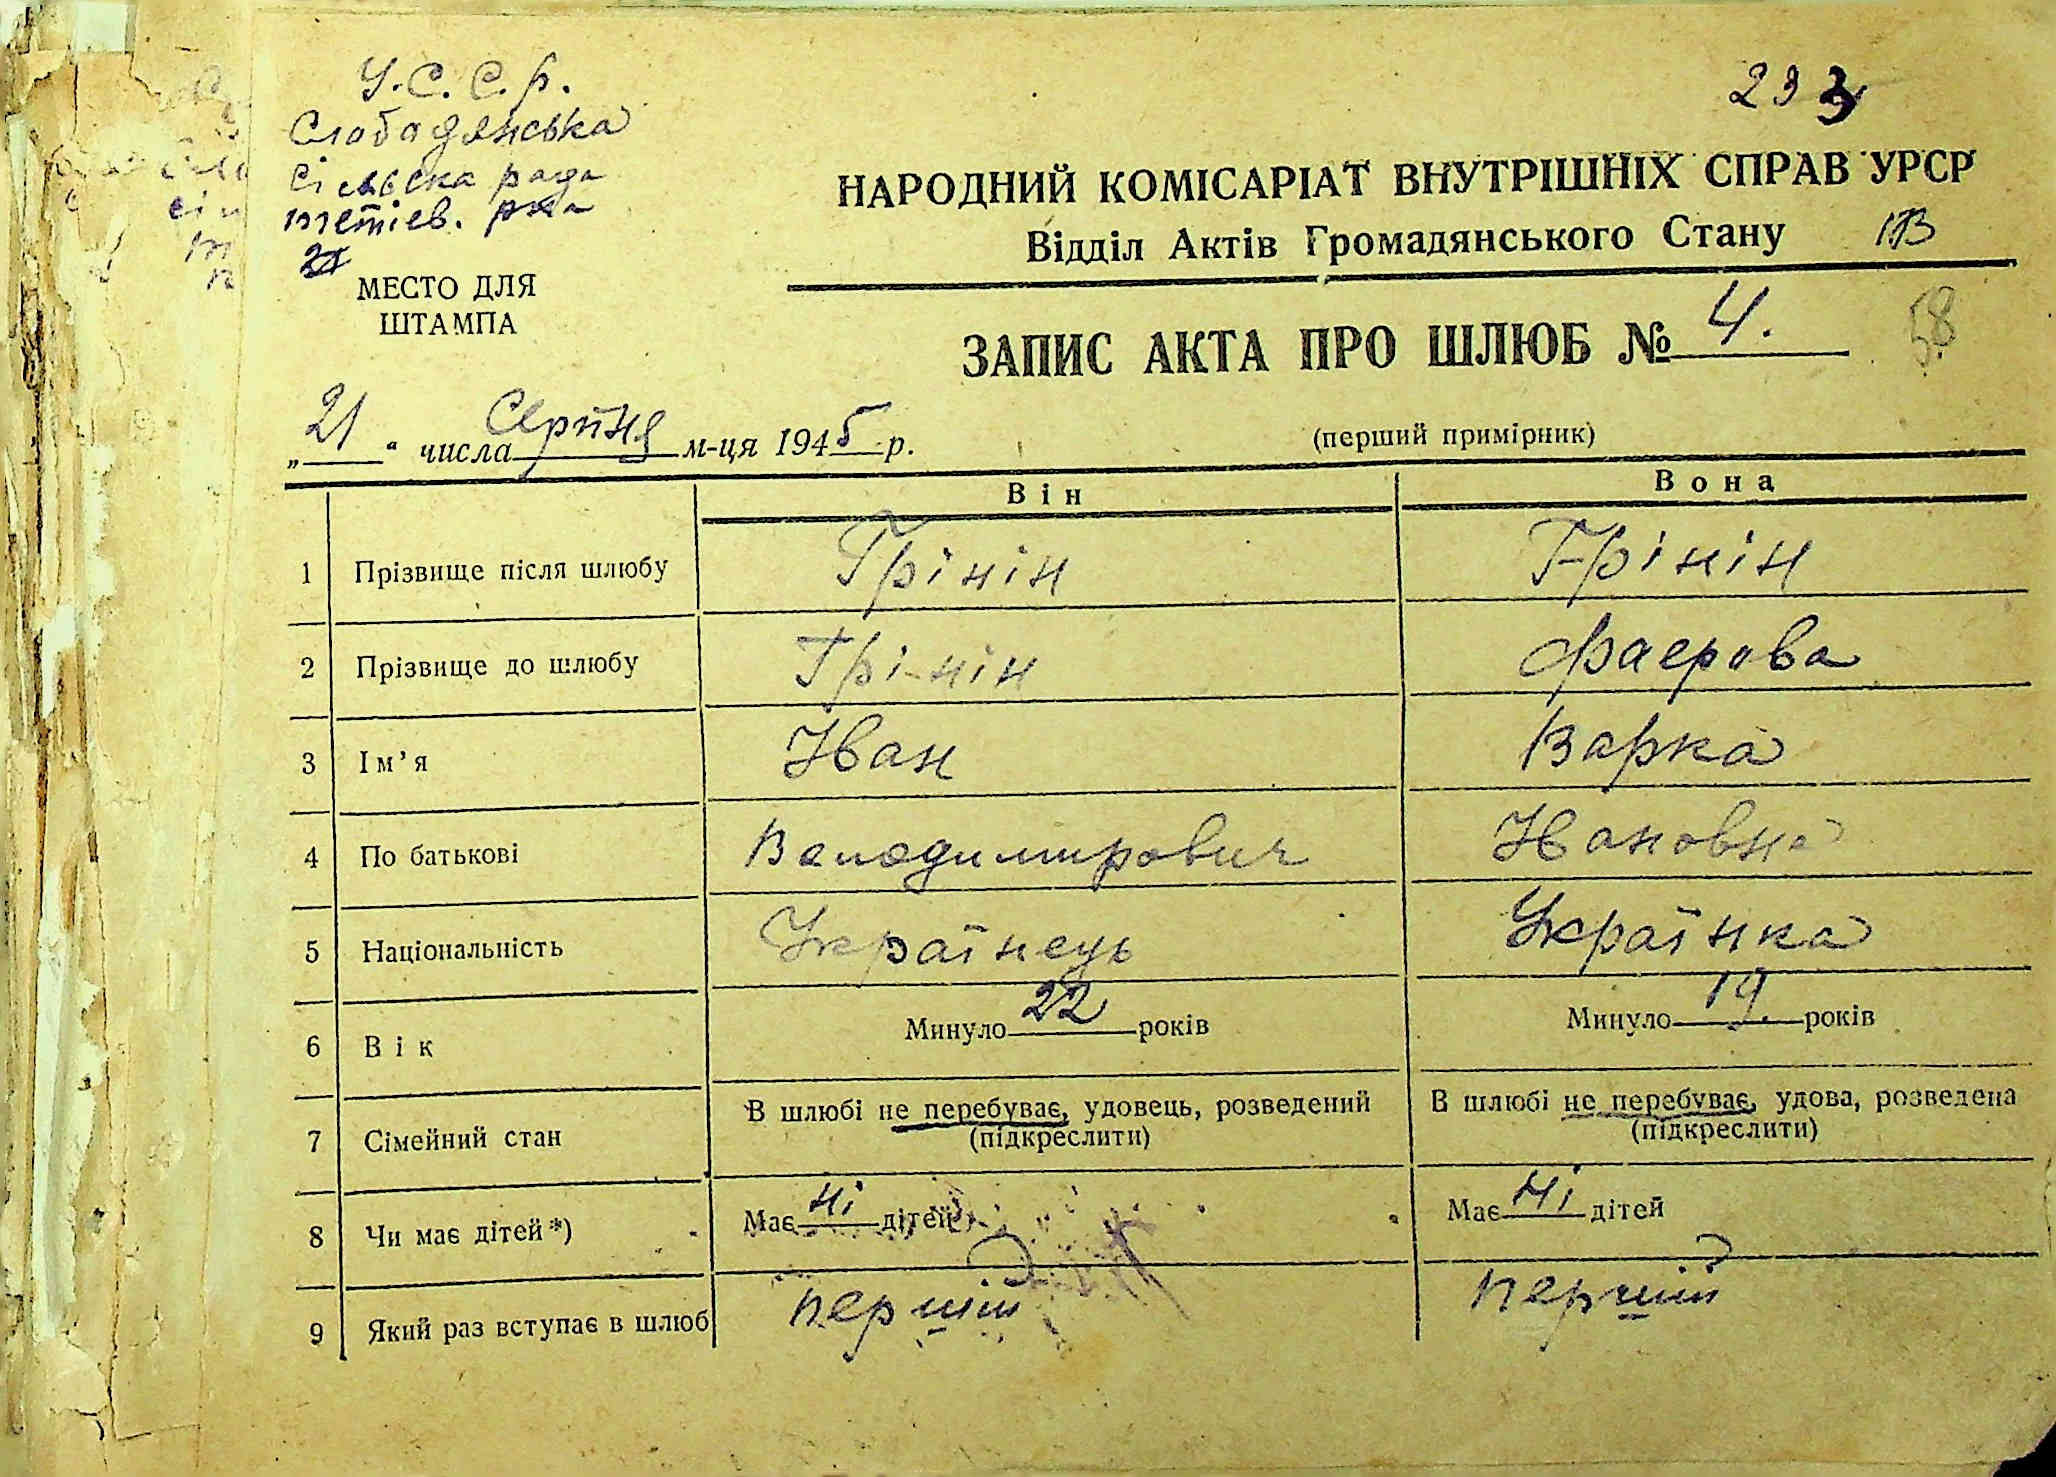 У.С.С.р.
Слабадянська
Сілвська рада
тетіев. рка
233
НАРОДНИЙ КОМІСАРІАТ ВНУТРІШНІХ СПРАВ УРСР
Відділ Актів Громадянського Стану
МЕСТО ДЛЯ
ШТАМПА
ЗАПИС АКТА ПРО ШЛЮБ № 4.
58
„21“ числа Серпня м-ця 1945 р.
(перший примірник)
Він Вона
1 Прізвище після шлюбу Грінін Грінін
2 Прізвище до шлюбу Грінін Фаерова
3 Ім’я Іван Варка
4 По батькові Володимирович Івановна
5 Національність Українець Українка
6 Вік Минуло 22 років Минуло 19. років
7 Сімейний стан В шлюбі не перебуває, удовець, розведений В шлюбі не перебуває, удова, розведена
(підкреслити) (підкреслити)
8 Чи має дітей*) Має ні дітей Має ні дітей
9 Який раз вступає в шлюб перший перший